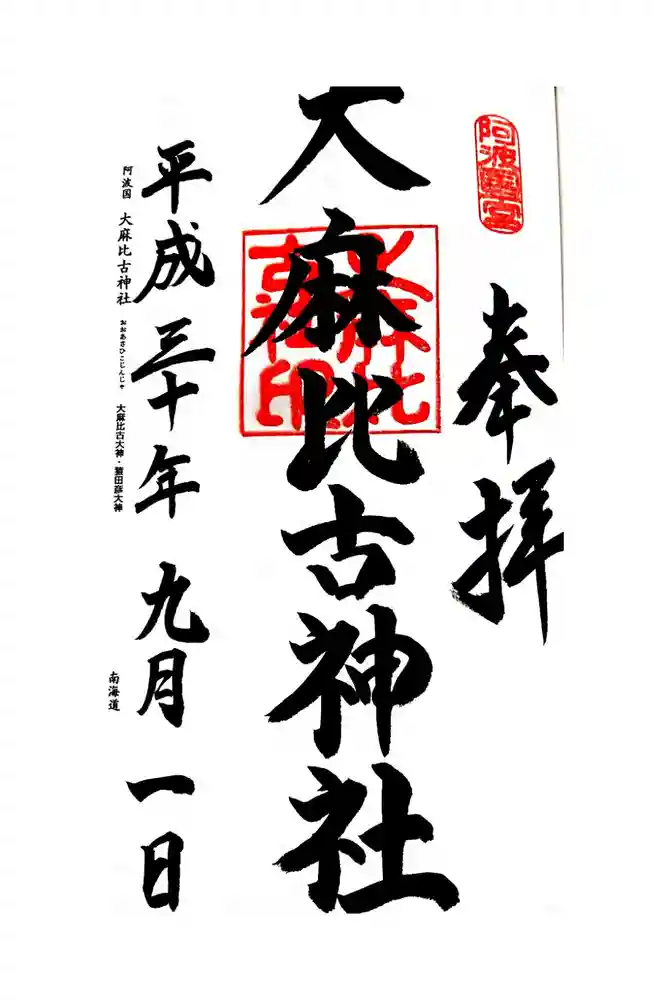 阿波國一宮
奉拝
大麻比古神社
平成三十年 九月 一日
阿波国 大麻比古神社 おおあさひこじんじゃ 大麻比古大神・猿田彦大神
南海道